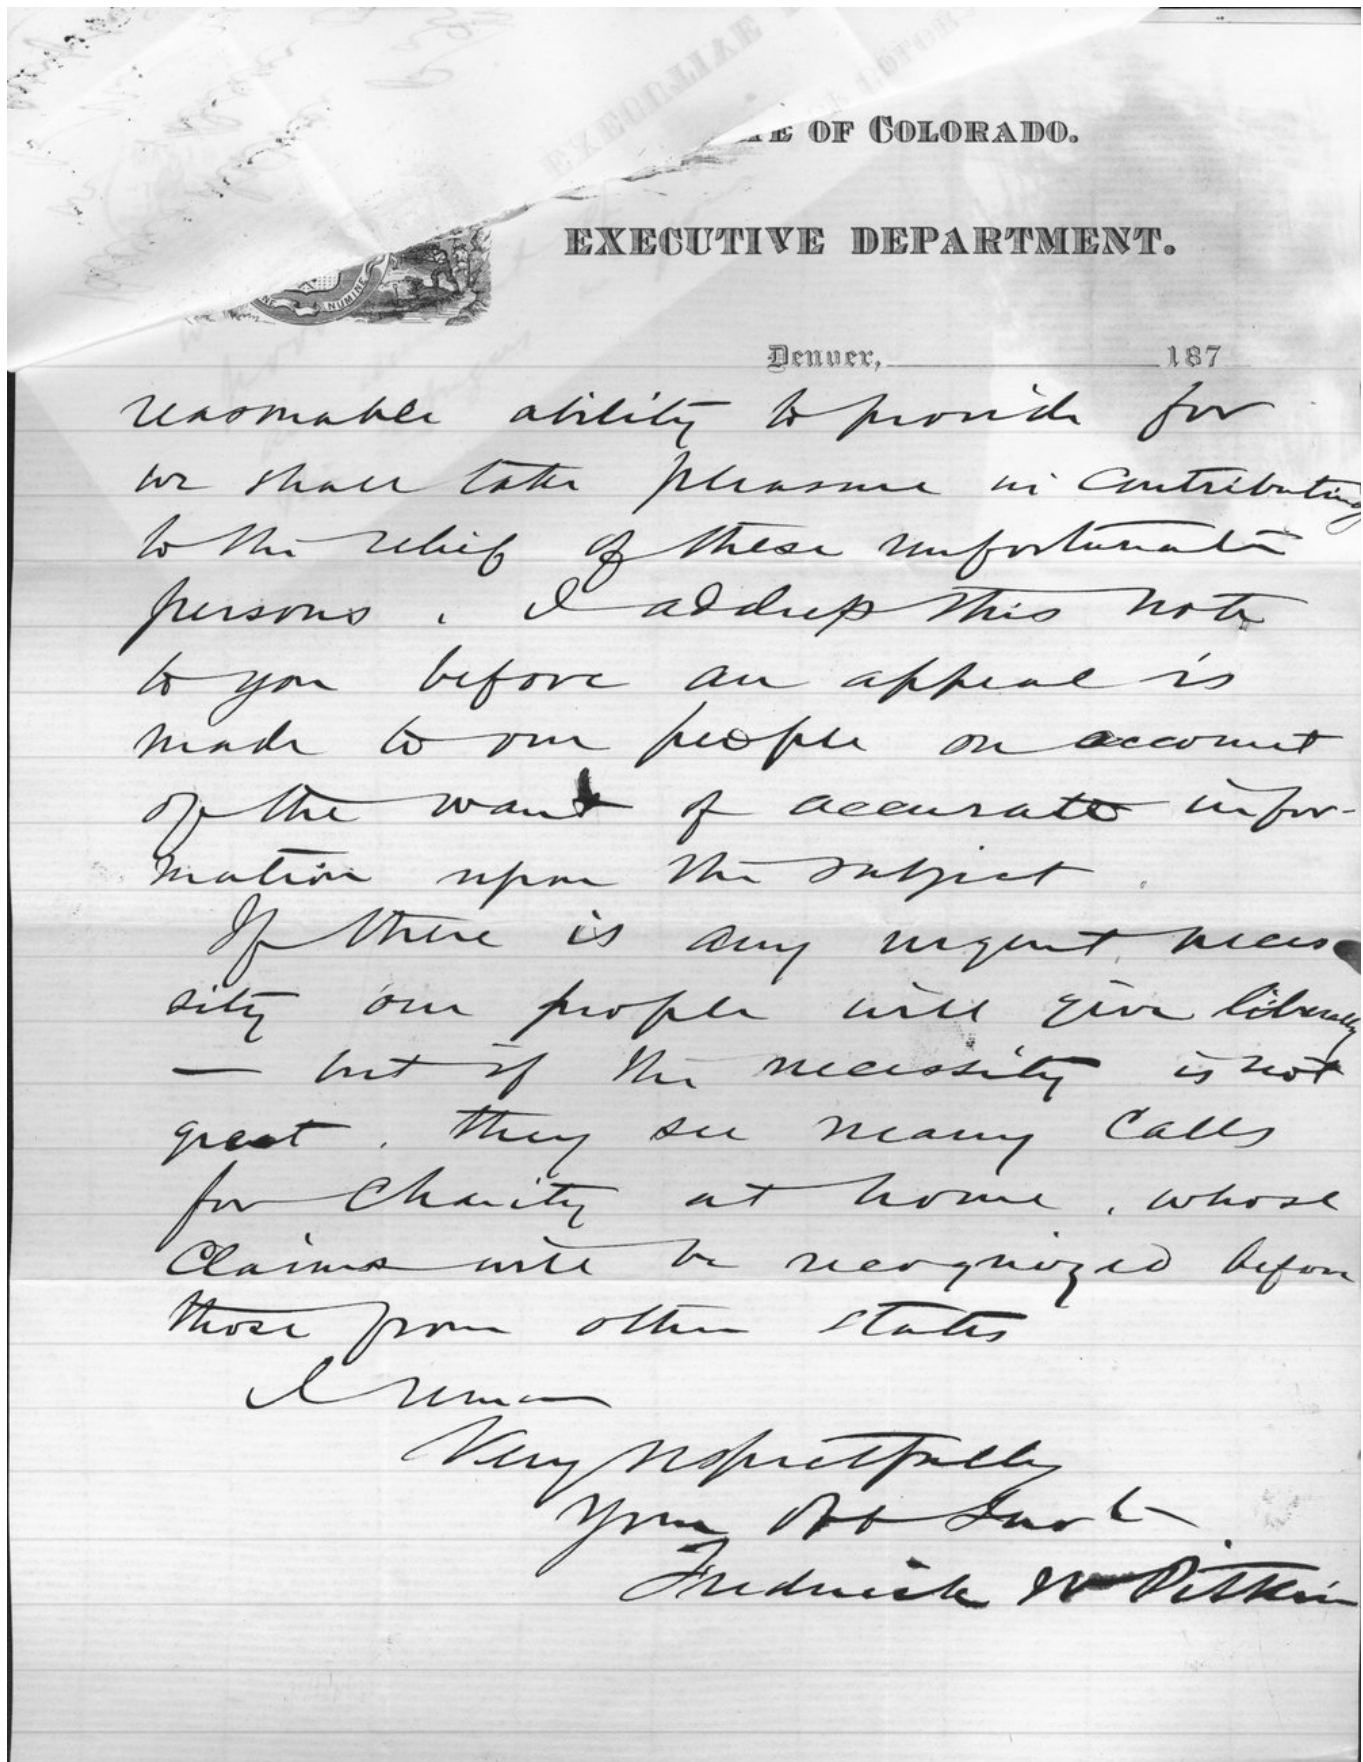 E OF COLORADO.
EXECUTIVE DEPARTMENT.
NUMINE
Denver, 187
reasonable ability to provide for
we shall take pleasure in contributing
to the relief of these unfortunate
persons. I address this note
to you before an appeal is
made to our people on account
of the want of accurate infor-
mation upon the subject.
If there is any urgent neces
sity our people will give liberally
— but if the necessity is not
great, they see many calls
for charity at home, whose
claims will be recognized before
those from other states
I remain
Very respectfully
Your Ob Servt
Frederick W Pitkin